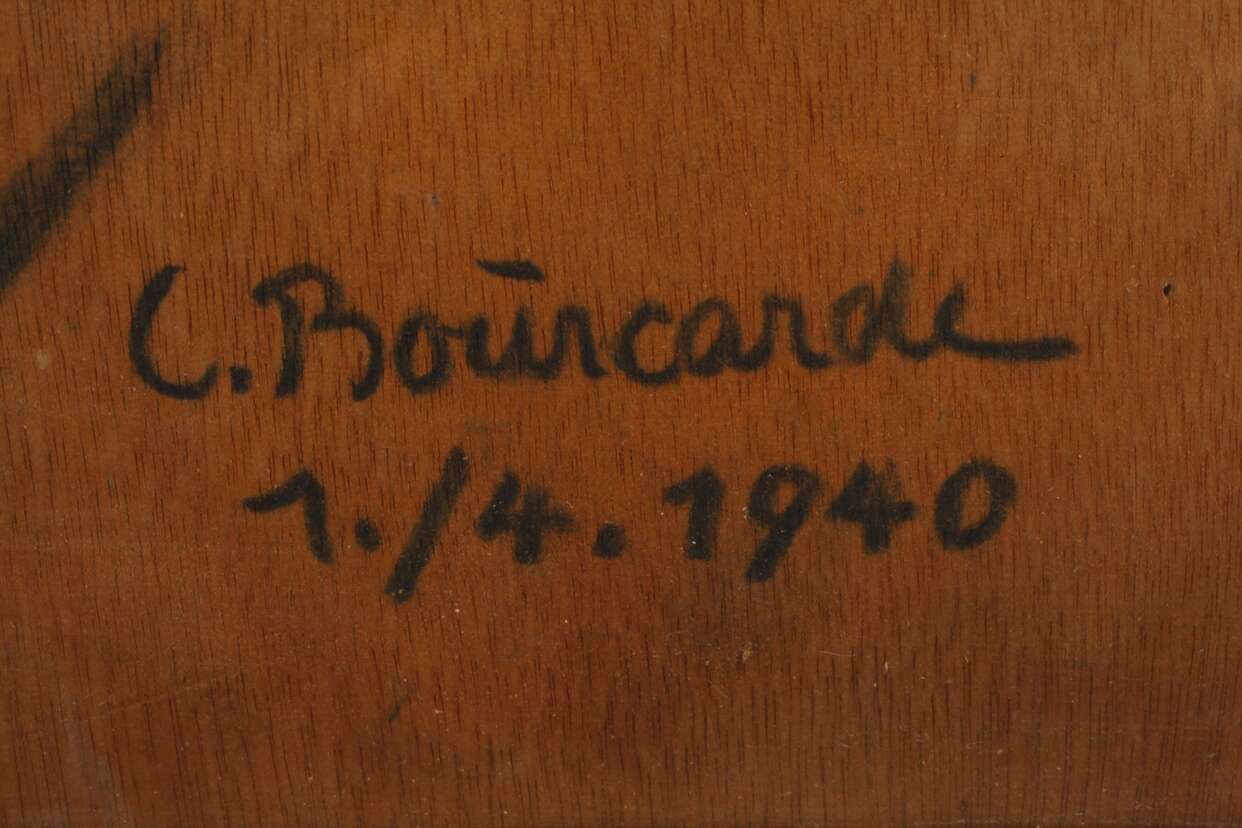 C. Bourcarde
1./4. 1940